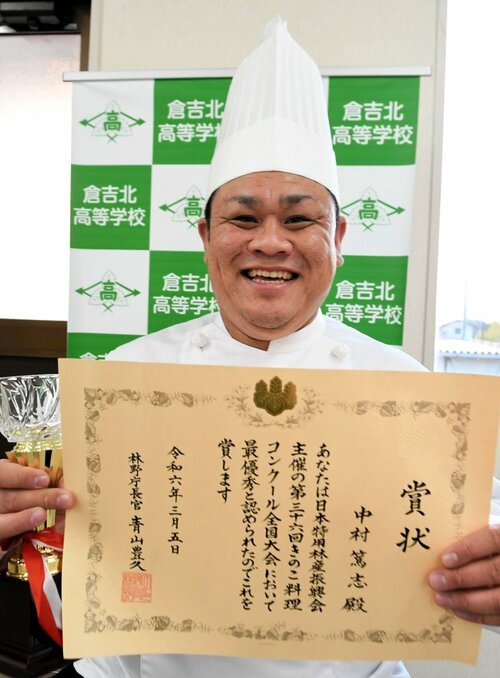 高
倉吉北
高等学校
倉吉北
高等学校
倉吉北
高等学校
高
高
倉吉北
高等学校
倉吉北
高等学校
賞状
中村篤志殿
あなたは日本特用林産振興会
主催の第三十六回きのこ料理
コンクール全国大会において
最優秀と認められたのでこれを
賞します
令和六年三月五日
林野庁長官 青山豊久